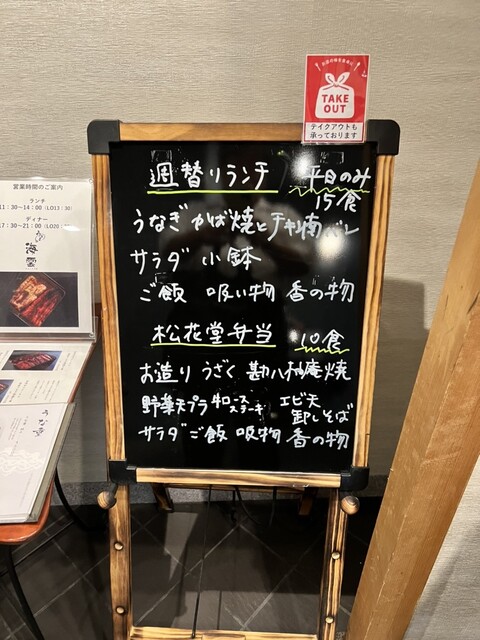 お店の味を業務に
TAKE
OUT
テイクアウトも
承っております
週替りランチ 平日のみ
15食
うなぎかば焼とチキン南バン
サラダ 小鉢
ご飯 吸い物 香の物
松花堂弁当 10食
お造り うざく 勘八柚庵焼
野菜天プラ 牛ロースステーキ エビ天卸しそば
サラダ ご飯 吸物 香の物
営業時間のご案内
ランチ
11:30〜14:00 (LO13:30)
ディナー
17:30〜21:00 (LO20: